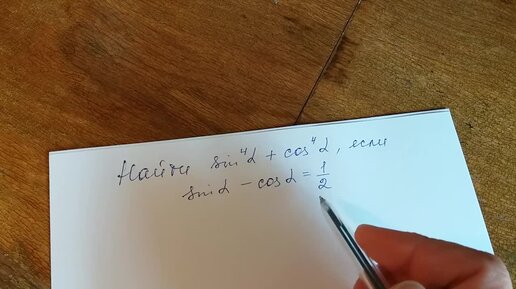 Найти sin⁴α + cos⁴α, если
sinα − cosα = 1/2